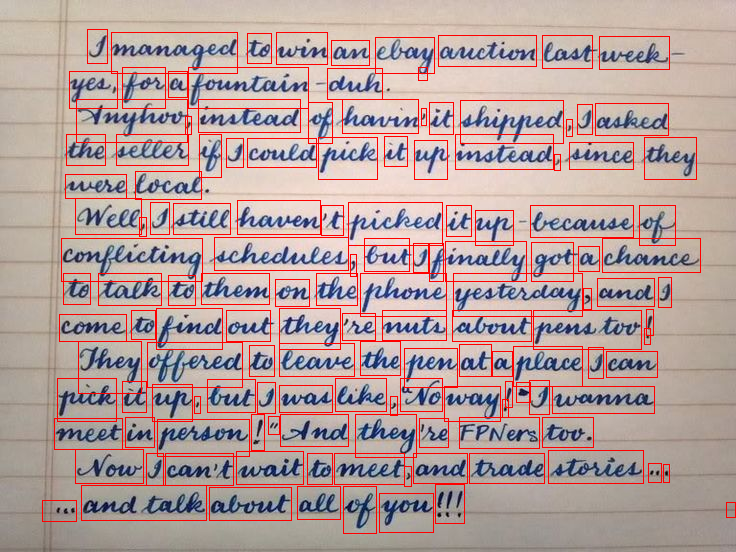 I managed to win an ebay auction last week-
yes, for a fountain-duh.
Anyhoo, instead of havin' it shipped, I asked
the seller if I could pick it up instead, since they
were local.
Well, I still haven't picked it up-because of
conflicting schedules, but I finally got a chance
to talk to them on the phone yesterday, and I
come to find out they're nuts about pens too!
They offered to leave the pen at a place I can
pick it up, but I was like, "No way!" I wanna
meet in person!" And they're FPNers too.
Now I can't wait to meet, and trade stories...
...and talk about all of you!!!